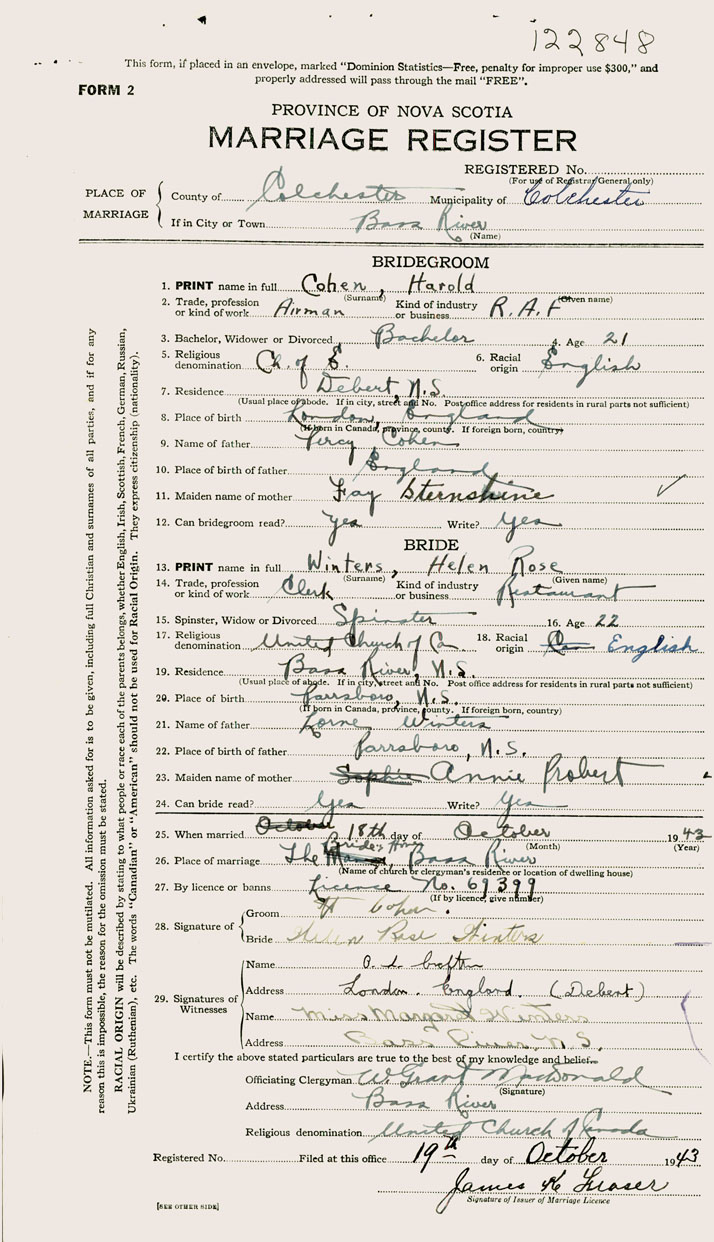 122848
This form, if placed in an envelope, marked "Dominion Statistics—Free, penalty for improper use $300," and
properly addressed will pass through the mail "FREE".
FORM 2
PROVINCE OF NOVA SCOTIA
MARRIAGE REGISTER
REGISTERED No.
(For use of Registrar General only)
PLACE OF MARRIAGE
County of Colchester Municipality of Colchester
If in City or Town Bass River
(Name)
BRIDEGROOM
1. PRINT name in full Cohen, Harold
(Surname) (Given name)
2. Trade, profession or kind of work Airman Kind of industry or business R.A.F
3. Bachelor, Widower or Divorced Bachelor 4. Age 21
5. Religious denomination Ch. of E. 6. Racial origin English
7. Residence Debert, N.S.
(Usual place of abode. If in city, street and No. Post office address for residents in rural parts not sufficient)
8. Place of birth London, England
(If born in Canada, province, county. If foreign born, country)
9. Name of father Percy Cohen
10. Place of birth of father England
11. Maiden name of mother Fay Sternshine
12. Can bridegroom read? Yes Write? Yes
BRIDE
13. PRINT name in full Winters, Helen Rose
(Surname) (Given name)
14. Trade, profession or kind of work Clerk Kind of industry or business Restaurant
15. Spinster, Widow or Divorced Spinster 16. Age 22
17. Religious denomination United Church of Ca 18. Racial origin Can English
19. Residence Bass River, N.S.
(Usual place of abode. If in city, street and No. Post office address for residents in rural parts not sufficient)
20. Place of birth Parrsboro, N.S.
(If born in Canada, province, county. If foreign born, country)
21. Name of father Lorne Winters
22. Place of birth of father Parrsboro, N.S.
23. Maiden name of mother Sophie Annie Probert
24. Can bride read? Yes Write? Yes
25. When married October 18th day of October 1943
(Month) (Year)
Bride's Home
26. Place of marriage The Manse, Bass River
(Name of church or clergyman's residence or location of dwelling house)
27. By licence or banns Licence No. 69399
(If by licence, give number)
28. Signature of
Groom H Cohen.
Bride Helen Rose Winters
29. Signatures of Witnesses
Name
Address London. England. (Debert)
Name Miss Margaret Winters
Address Bass River, N.S.
I certify the above stated particulars are true to the best of my knowledge and belief.
Officiating Clergyman W. Grant MacDonald
(Signature)
Address Bass River
Religious denomination United Church of Canada
Registered No. Filed at this office 19th day of October 1943
James K Fraser
Signature of Issuer of Marriage Licence
[SEE OTHER SIDE]
NOTE.—This form must not be mutilated. All information asked for is to be given, including full Christian and surnames of all parties, and if for any
reason this is impossible, the reason for the omission must be stated.
RACIAL ORIGIN will be described by stating to what people or race each of the parents belongs, whether English, Irish, Scottish, French, German, Russian,
Ukrainian (Ruthenian), etc. The words "Canadian" or "American" should not be used for Racial Origin. They express citizenship (nationality).